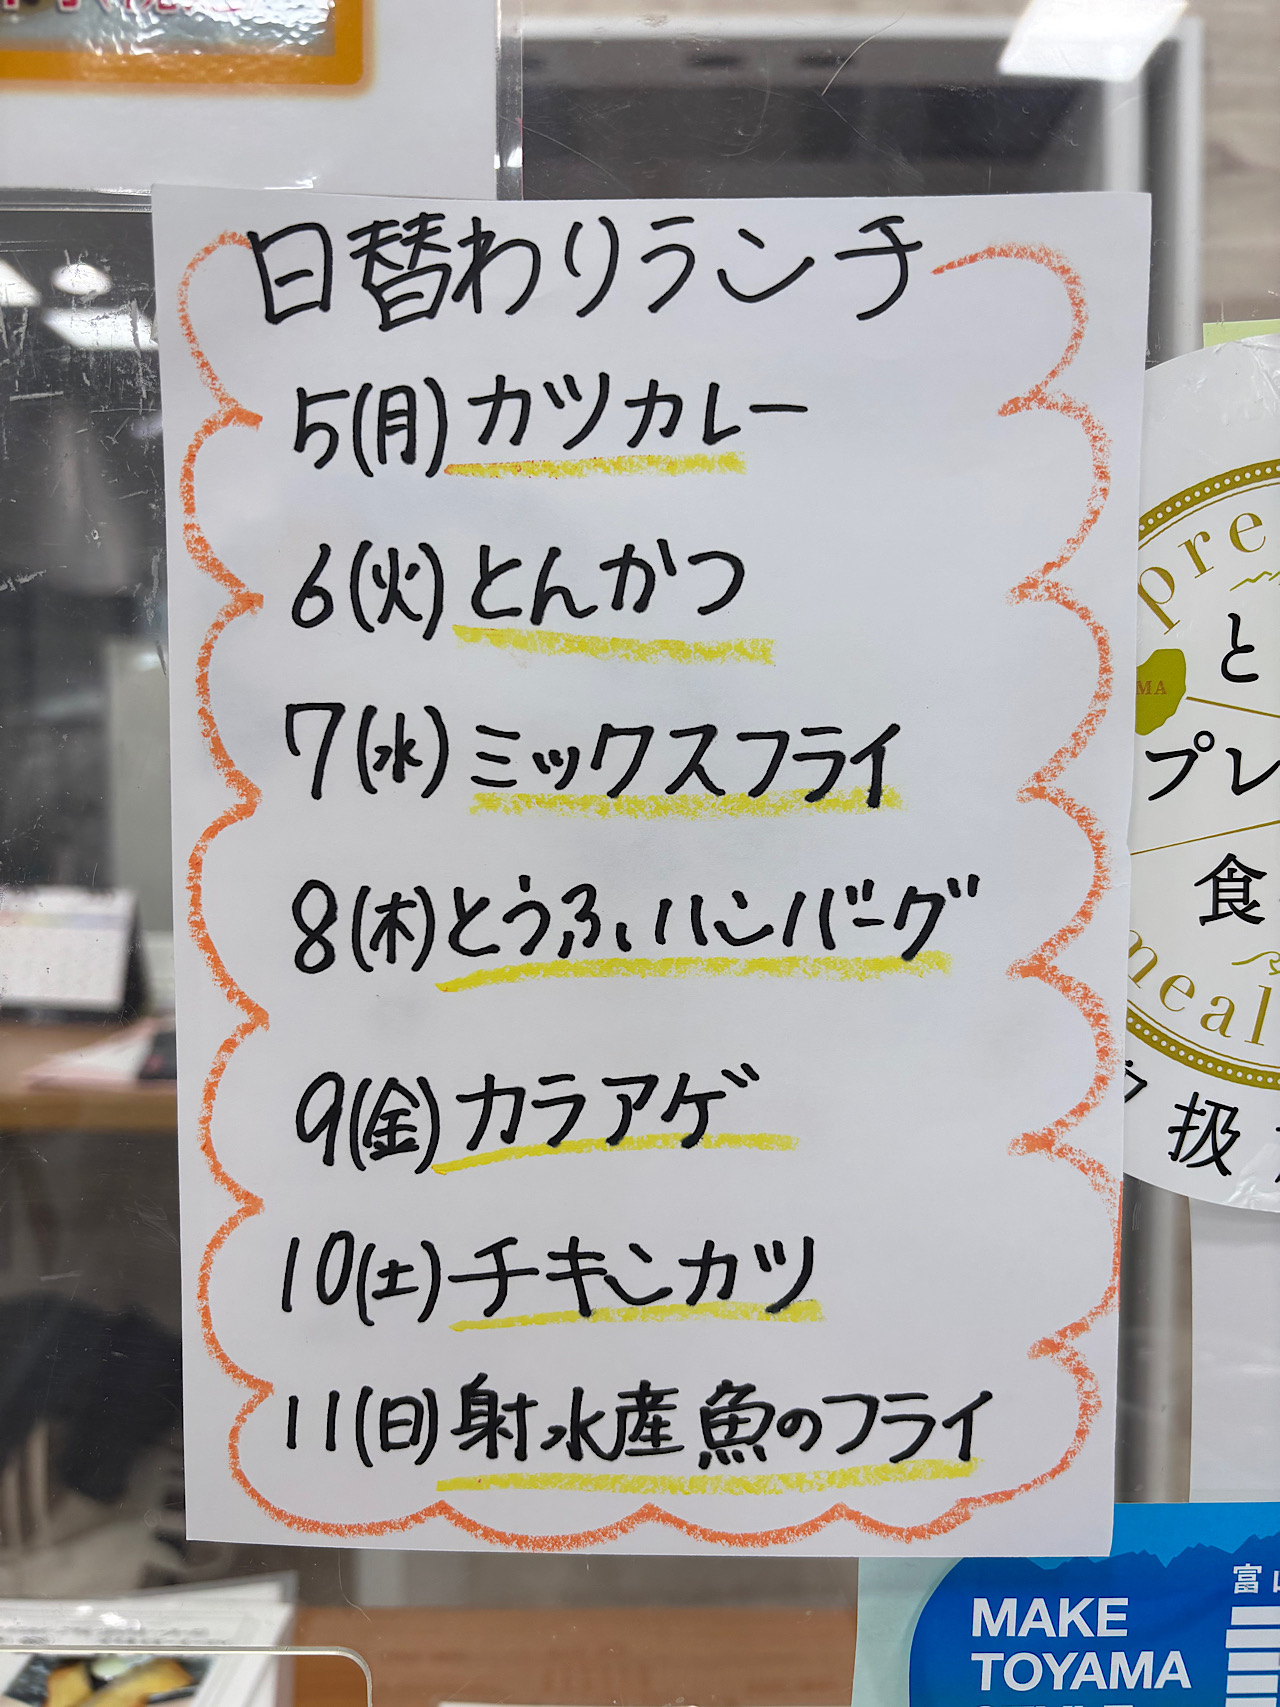 日替わりランチ
5(月)カツカレー
6(火)とんかつ
7(水)ミックスフライ
8(木)とうふハンバーグ
9(金)カラアゲ
10(土)チキンカツ
11(日)射水産魚のフライ
pre
と
MA
プレ
食
meal
扱
富山
MAKE
TOYAMA